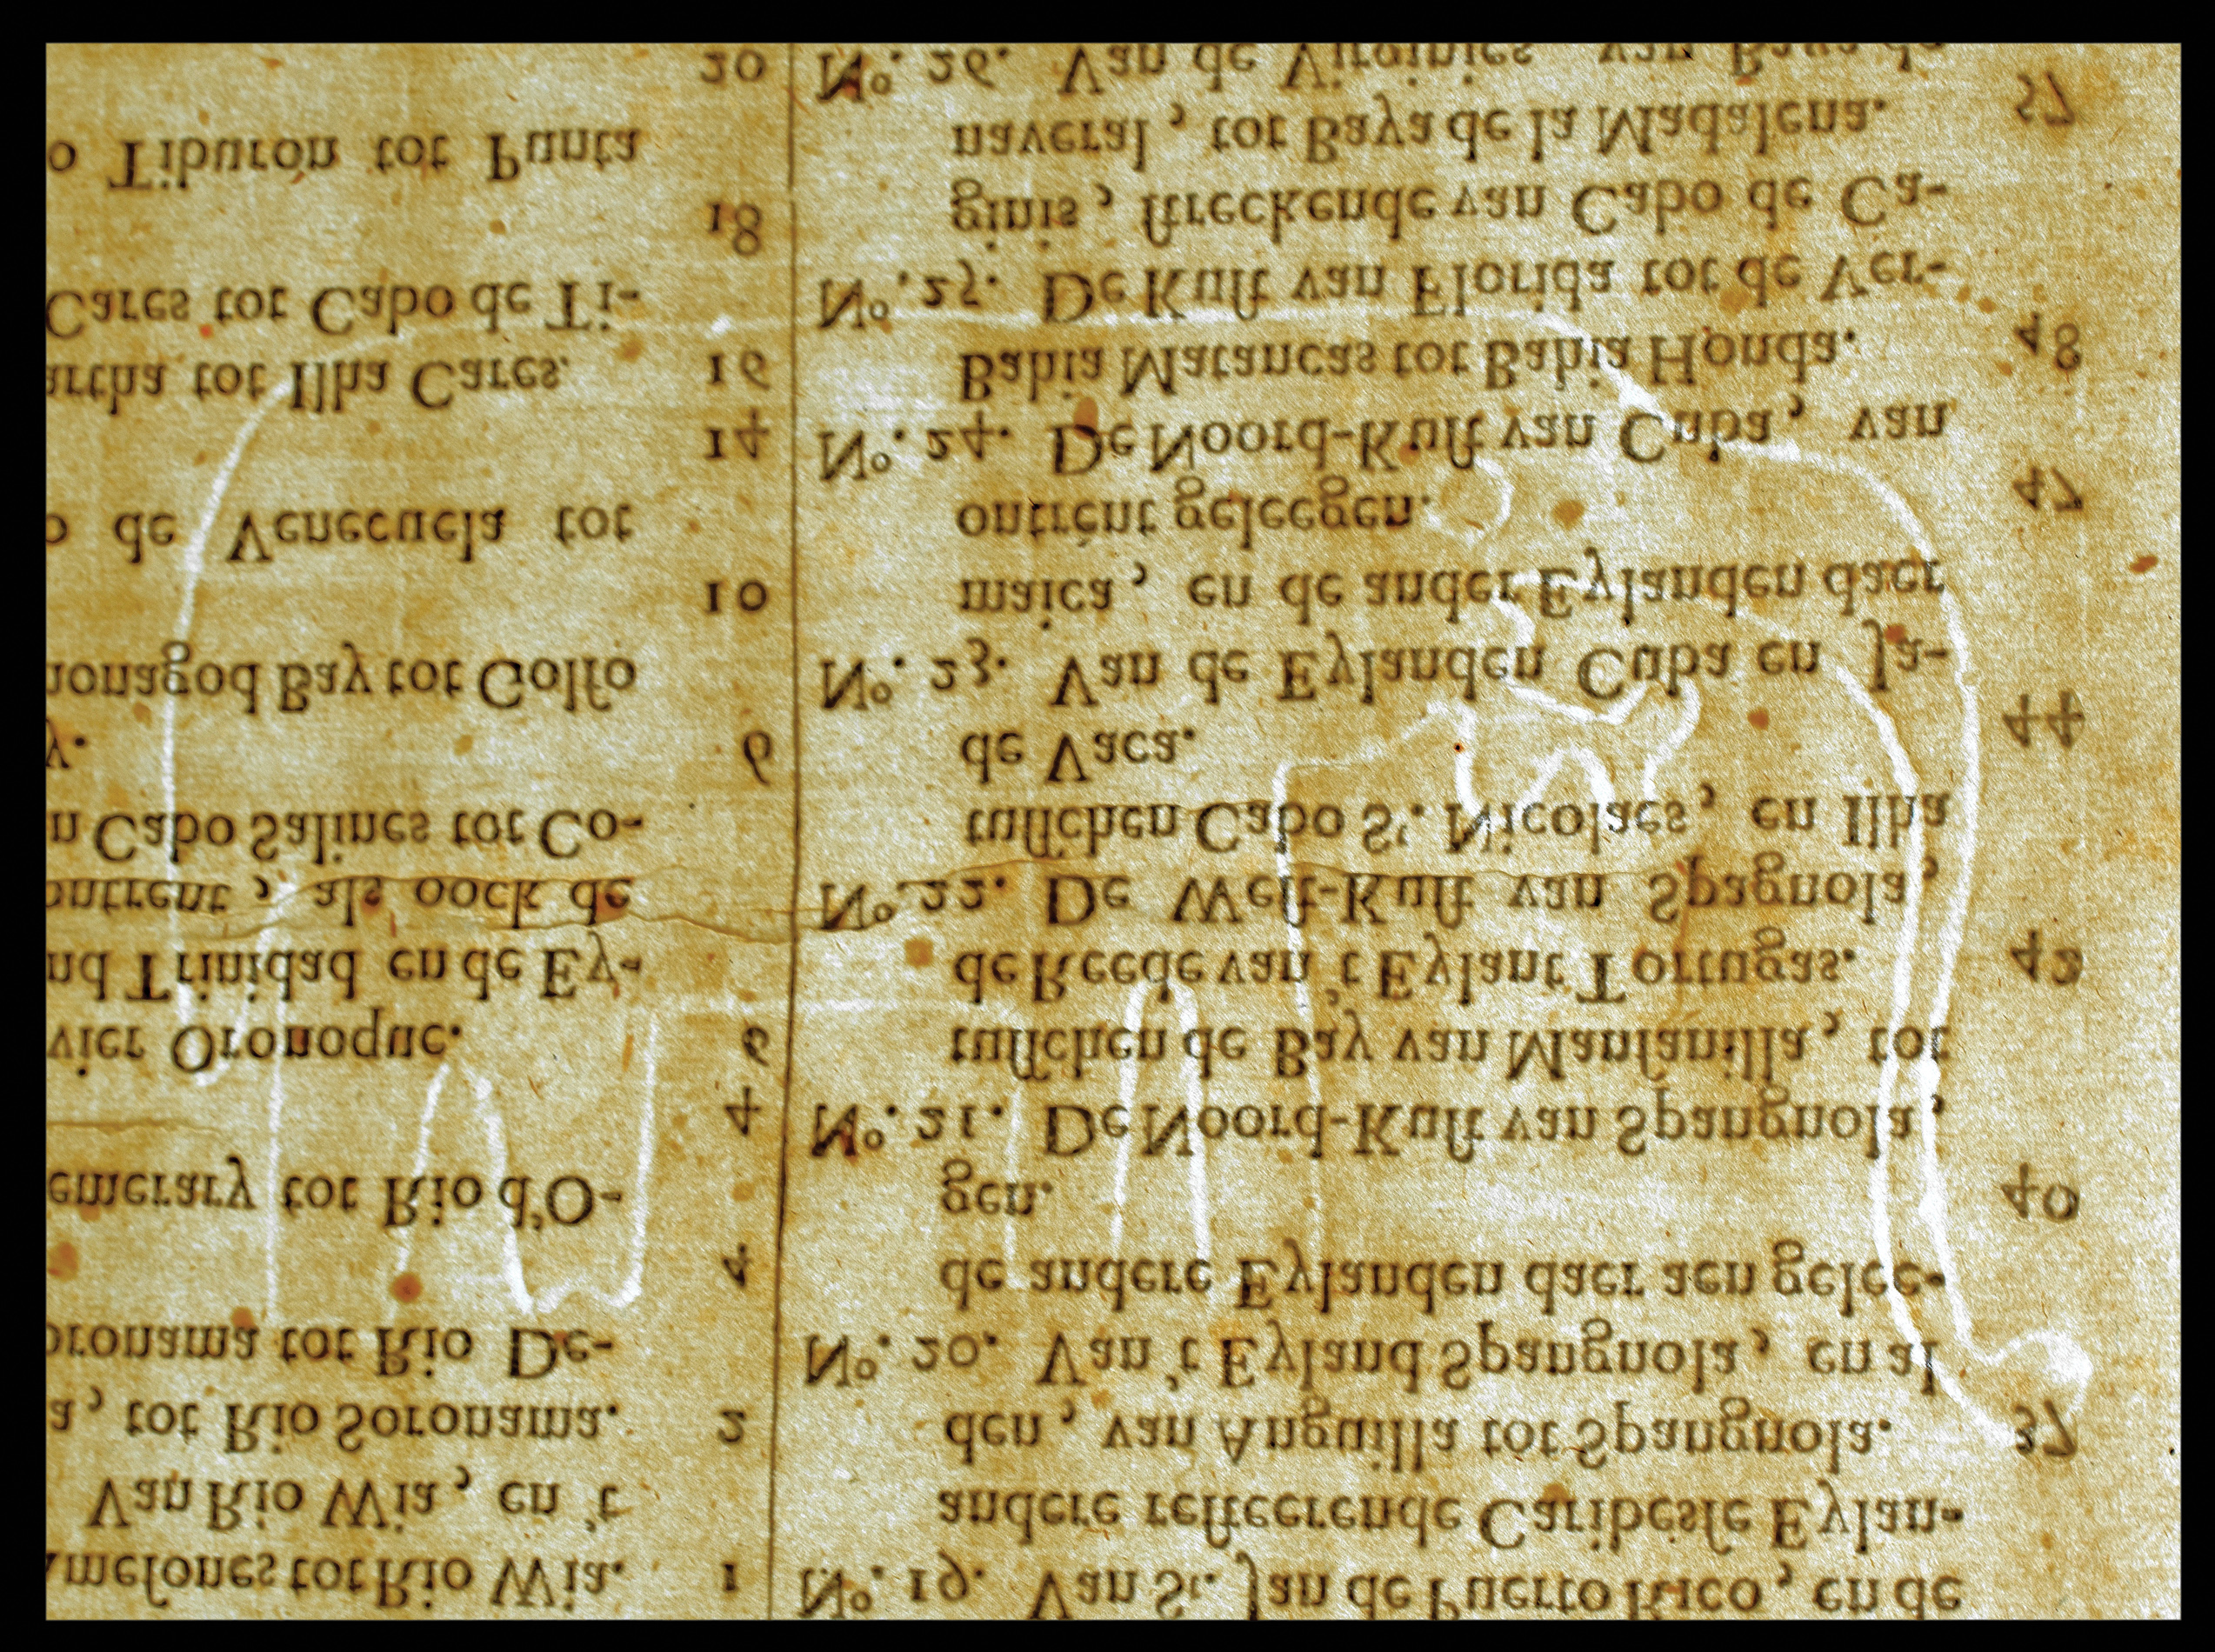 meſones tot Rio Wia. 1
Van Rio Wia, en 't
a, tot Rio Soronama. 2
oronama tot Rio De-
4
emerary tot Rio d'O-
4
vier Oronoque. 6
nd Trinidad en de Ey-
ontrent, als oock de
n Cabo Salines tot Co-
y. 6
nonagod Bay tot Golfo
10
o de Venecuela tot
14
artha tot Ilha Cares. 16
Cares tot Cabo de Ti-
18
o Tiburon tot Punta
20
Nº. 19. Van St. Jan de Puerto Rico, en de
andere reſteerende Caribesſe Eylan-
den, van Anguilla tot Spangnola. 37
Nº. 20. Van 't Eyland Spangnola, en al
de andere Eylanden daer aen gelee-
gen. 40
Nº. 21. De Noord-Kuſt van Spangnola,
tuſſchen de Bay van Manſanilla, tot
de Reede van 't Eylant Tortugas. 42
Nº. 22. De Weſt-Kuſt van Spagnola,
tuſſchen Cabo St. Nicolaes, en Ilha
de Vaca. 44
Nº. 23. Van de Eylanden Cuba en Ja-
maica, en de ander Eylanden daer
ontrent geleegen. 47
Nº. 24. De Noord-Kuſt van Cuba, van
Bahia Matancas tot Bahia Honda. 48
Nº. 25. De Kuſt van Florida tot de Ver-
ginis, ſtreckende van Cabo de Ca-
naveral, tot Baya de la Madalena. 57
Nº. 26. Van de Virginies van Baya de